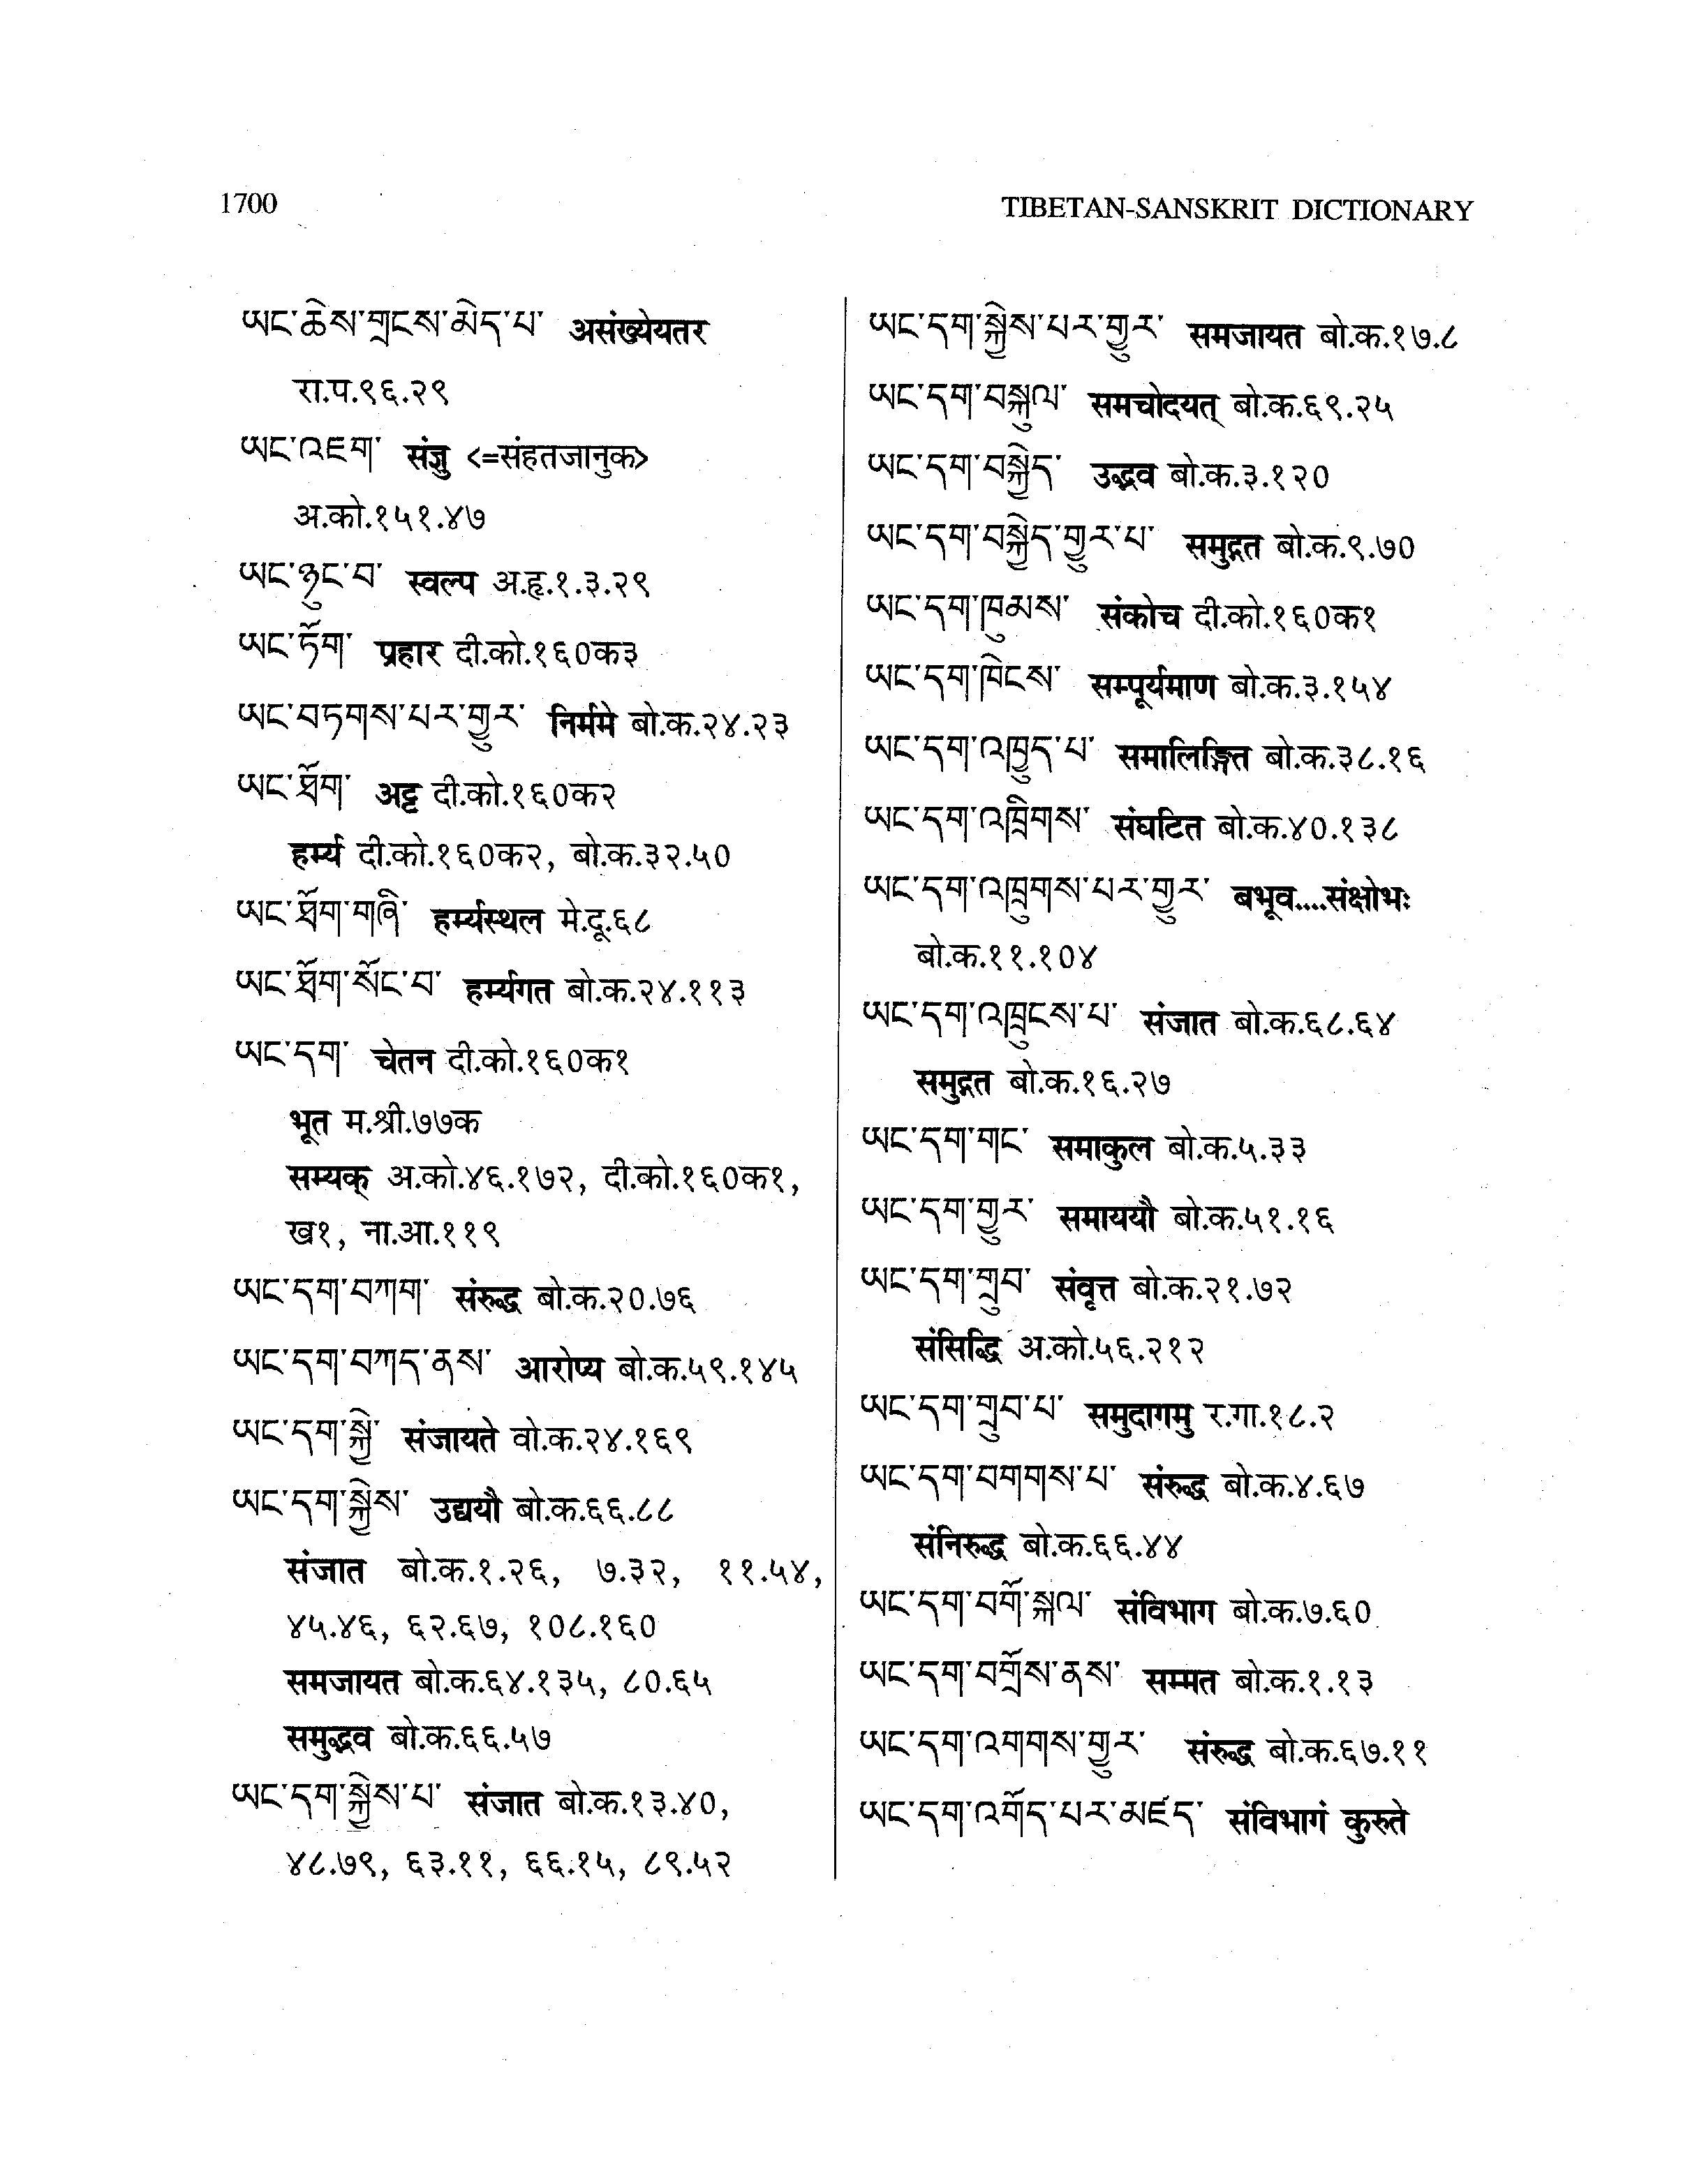 1700
TIBETAN-SANSKRIT DICTIONARY
ཡང་ཆེས་གྲངས་མེད་པ་ असंख्येयतर
रा.प.९६.२९
ཡང་འཇག་ संज्ञु <=संहतजानुक>
अ.को.१५१.४७
ཡང་ཉུང་བ་ स्वल्प अ.हृ.१.३.२९
ཡང་ཏོག་ प्रहार दी.को.१६०क३
ཡང་བཏགས་པར་གྱུར་ निर्ममे बो.क.२४.२३
ཡང་ཐོག་ अट्ट दी.को.१६०क२
हर्म्य दी.को.१६०क२, बो.क.३२.५०
ཡང་ཐོག་གཞི་ हर्म्यस्थल मे.दू.६८
ཡང་ཐོག་སོང་བ་ हर्म्यगत बो.क.२४.११३
ཡང་དག་ चेतन दी.को.१६०क१
भूत म.श्री.७७क
सम्यक् अ.को.४६.१७२, दी.को.१६०क१,
ख१, ना.आ.११९
ཡང་དག་བཀག་ संरुद्ध बो.क.२०.७६
ཡང་དག་བཀད་ནས་ आरोप्य बो.क.५९.१४५
ཡང་དག་སྐྱེ་ संजायते वो.क.२४.१६९
ཡང་དག་སྐྱེས་ उद्ययौ बो.क.६६.८८
संजात बो.क.१.२६, ७.३२, ११.५४,
४५.४६, ६२.६७, १०८.१६०
समजायत बो.क.६४.१३५, ८०.६५
समुद्भव बो.क.६६.५७
ཡང་དག་སྐྱེས་པ་ संजात बो.क.१३.४०,
४८.७९, ६३.११, ६६.१५, ८९.५२
ཡང་དག་སྐྱེས་པར་གྱུར་ समजायत बो.क.१७.८
ཡང་དག་བསྐུལ་ समचोदयत् बो.क.६९.२५
ཡང་དག་བསྐྱེད་ उद्भव बो.क.३.१२०
ཡང་དག་བསྐྱེད་གྱུར་པ་ समुद्गत बो.क.९.७०
ཡང་དག་ཁུམས་ संकोच दी.को.१६०क१
ཡང་དག་ཁེངས་ सम्पूर्यमाण बो.क.३.१५४
ཡང་དག་འཁྱུད་པ་ समालिङ्गित बो.क.३८.१६
ཡང་དག་འཁྲིགས་ संघटित बो.क.४०.१३८
ཡང་དག་འཁྲུགས་པར་གྱུར་ बभूव....संक्षोभः
बो.क.११.१०४
ཡང་དག་འཁྲུངས་པ་ संजात बो.क.६८.६४
समुद्गत बो.क.१६.२७
ཡང་དག་གང་ समाकुल बो.क.५.३३
ཡང་དག་གྱུར་ समाययौ बो.क.५१.१६
ཡང་དག་གྲུབ་ संवृत्त बो.क.२१.७२
संसिद्धि अ.को.५६.२१२
ཡང་དག་གྲུབ་པ་ समुदागमु र.गा.१८.२
ཡང་དག་བགགས་པ་ संरुद्ध बो.क.४.६७
संनिरुद्ध बो.क.६६.४४
ཡང་དག་བགོ་སྐལ་ संविभाग बो.क.७.६०
ཡང་དག་བགྲོས་ནས་ सम्मत बो.क.१.१३
ཡང་དག་འགགས་གྱུར་ संरुद्ध बो.क.६७.११
ཡང་དག་འགོད་པར་མཛད་ संविभागं कुरुते